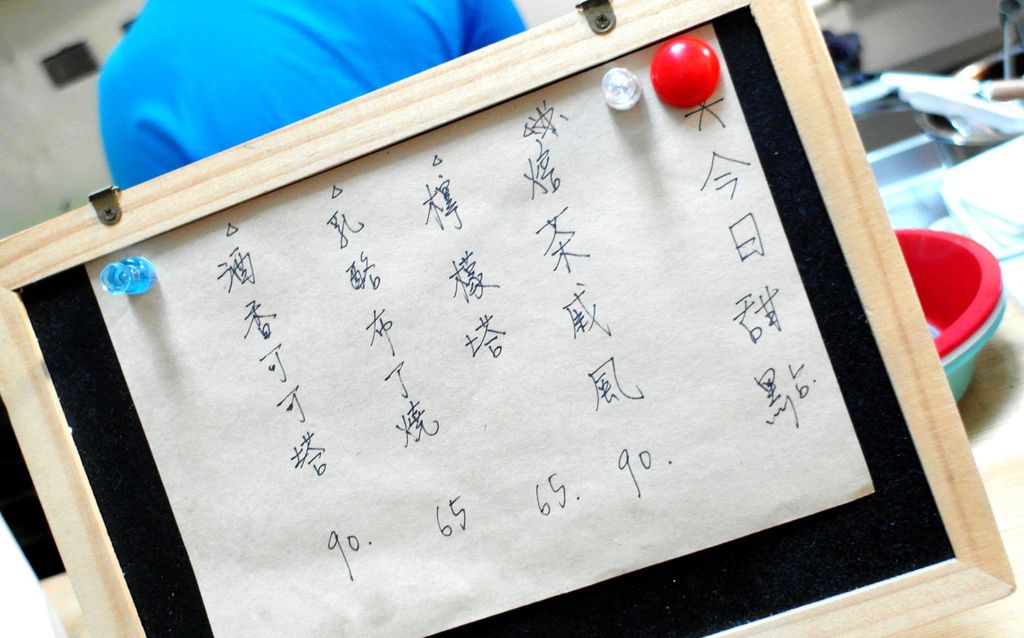 *今日甜點
焙茶戚風 90.
△檸檬塔 65.
△乳酪布丁燒 65
△酒香可可塔 90.